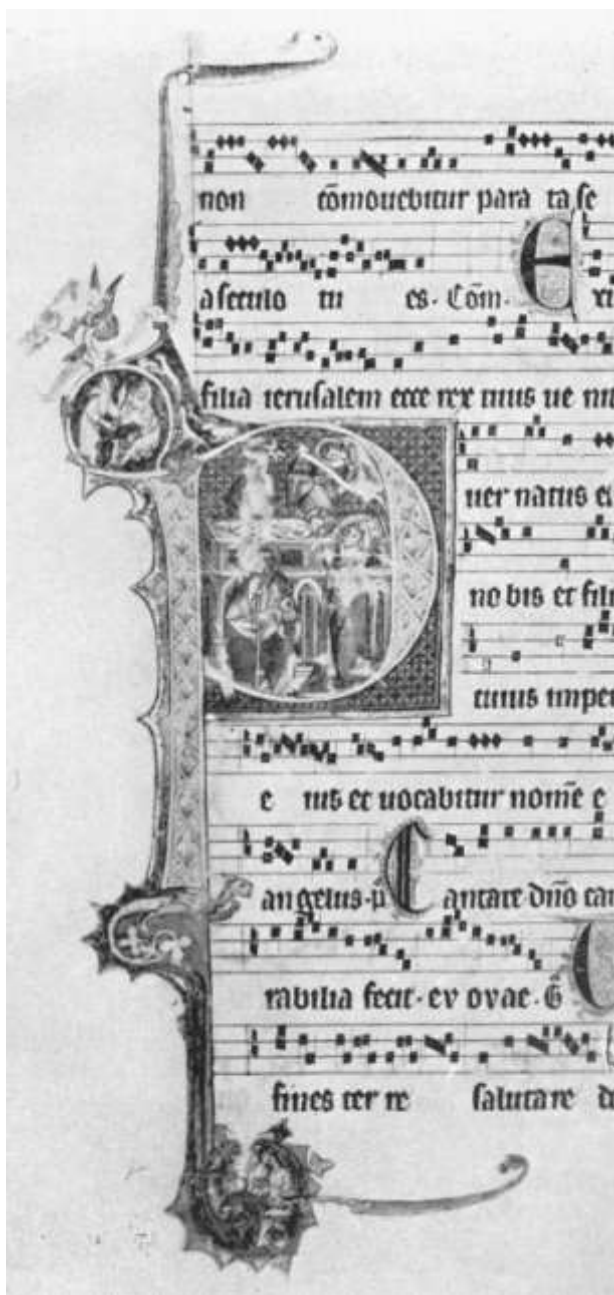 non cōmouebitur para ta se
a seculo tu es. Cōm. E xu
filia ierusalem ecce rex tuus ue nit
P uer natus e
no bis et fili
cuius impe
e ius et uocabitur nomē e
angelus. p C antate dño can
rabilia fecit. ev ovae. G
fines ter re salutare d